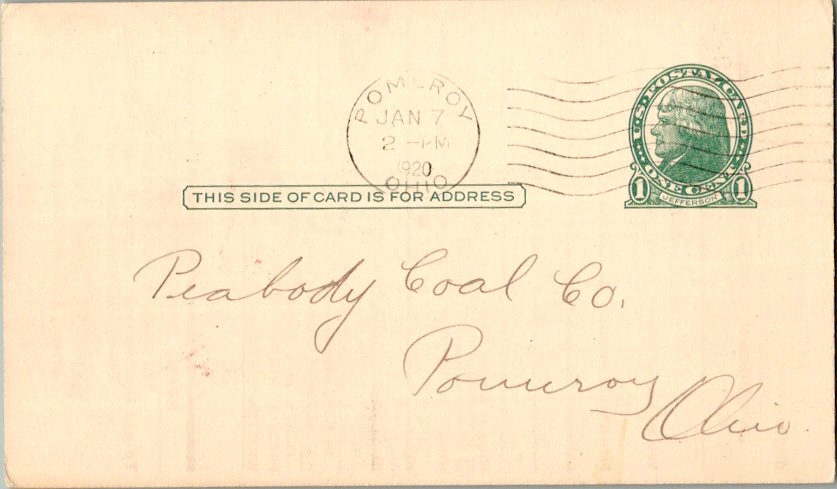 POMEROY
JAN 7
2 - PM
1920
OHIO
U.S. POSTAL CARD
ONE CENT
1 JEFFERSON 1
THIS SIDE OF CARD IS FOR ADDRESS
Peabody Coal Co.
Pomeroy
Ohio.